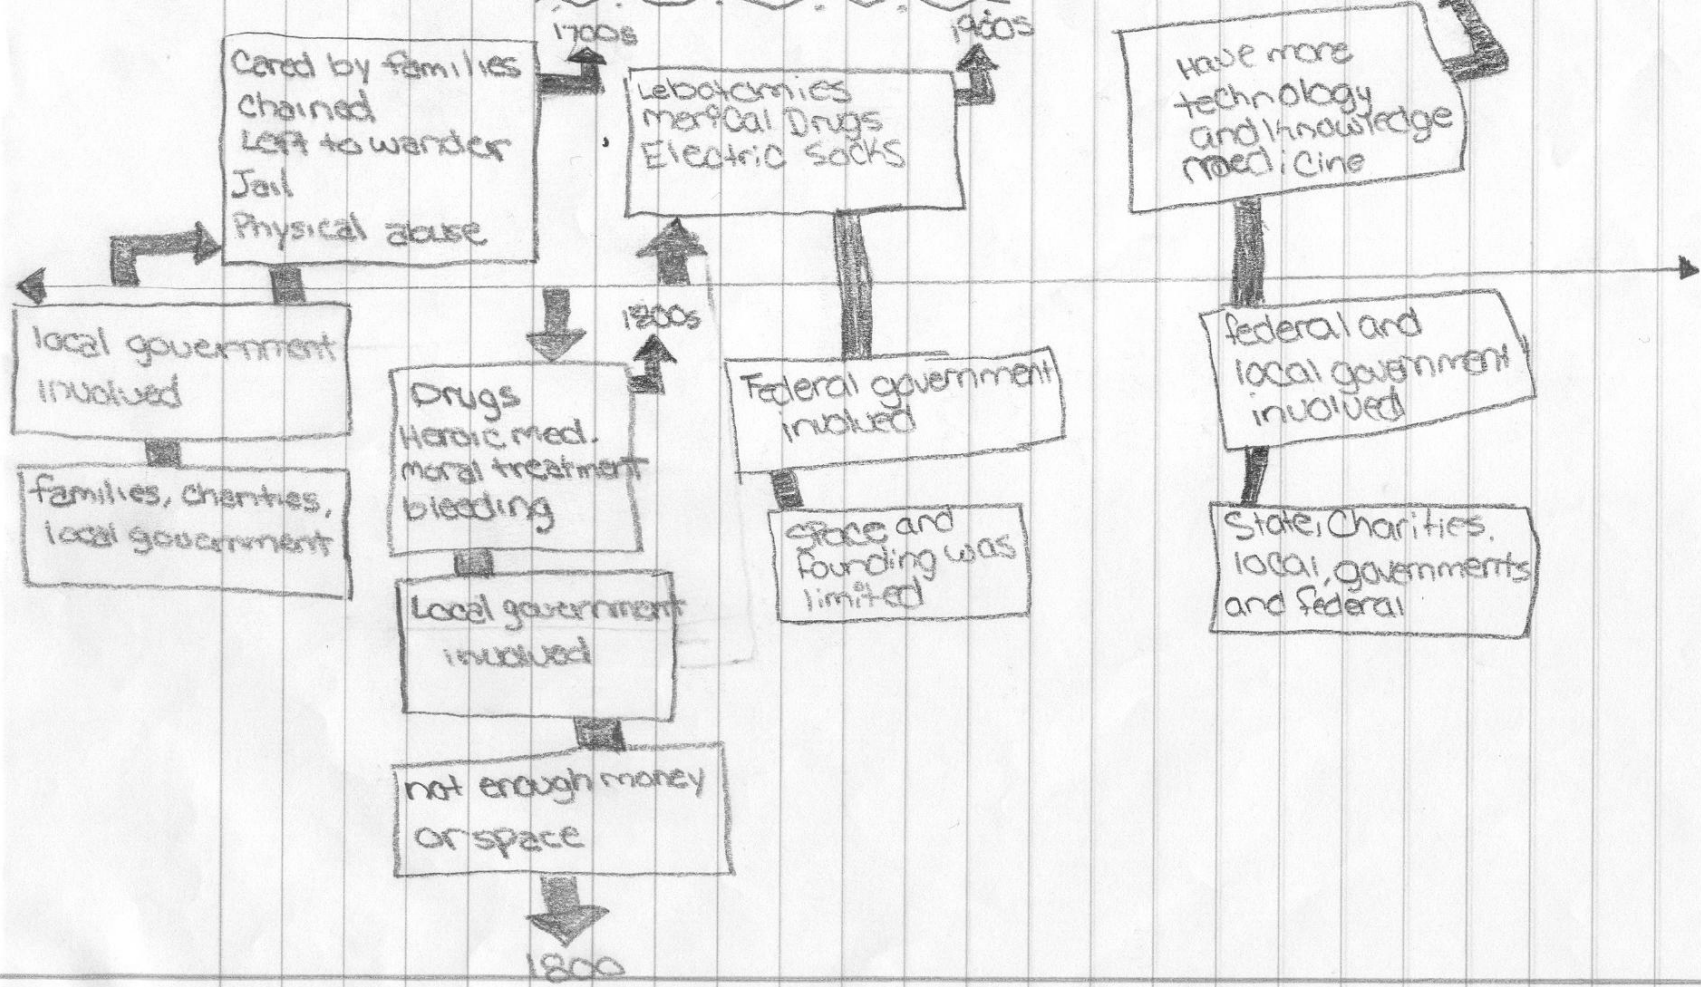 1700s
Cared by families
Chained
Left to wander
Jail
Physical abuse
local government
involved
families, charities,
local government
1800s
Drugs
Heroic med.
moral treatment
bleeding
Local government
involved
not enough money
or space
1800
1900s
Lebotomies
Drugs
Electric Socks
Federal government
involved
Space and
founding was
limited
Have more
technology
and knowledge
medicine
federal and
local government
involved
State, Charities.
local, governments
and federal